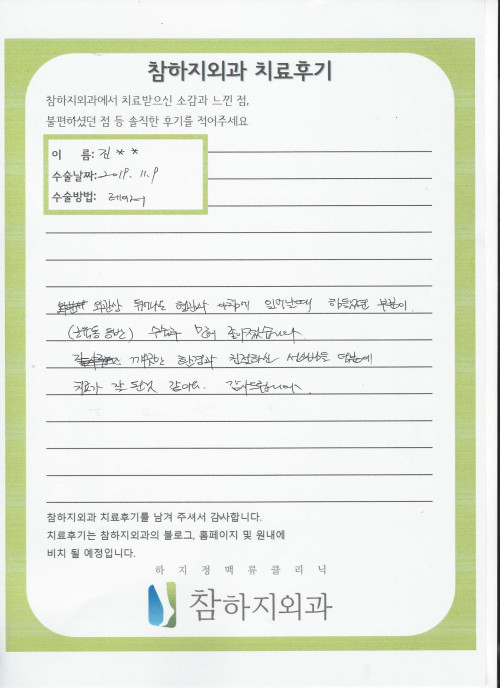 참하지외과 치료후기
참하지외과에서 치료받으신 소감과 느낀 점,
불편하셨던 점 등 솔직한 후기를 적어주세요
이 름: 진 * *
수술날짜: 2019. 11. 9
수술방법: 레이저
외관상 뿐만 아니라 아침에 일어난때 힘들었던 부분이
(근육통 동반) 수술후 많이 좋아졌습니다.
깨끗한 환경과 친절하신 선생님들 덕분에
치료가 잘 된것 같아요. 감사드립니다.
참하지외과 치료후기를 남겨 주셔서 감사합니다.
치료후기는 참하지외과의 블로그, 홈페이지 및 원내에
비치 될 예정입니다.
하지정맥류클리닉
참하지외과